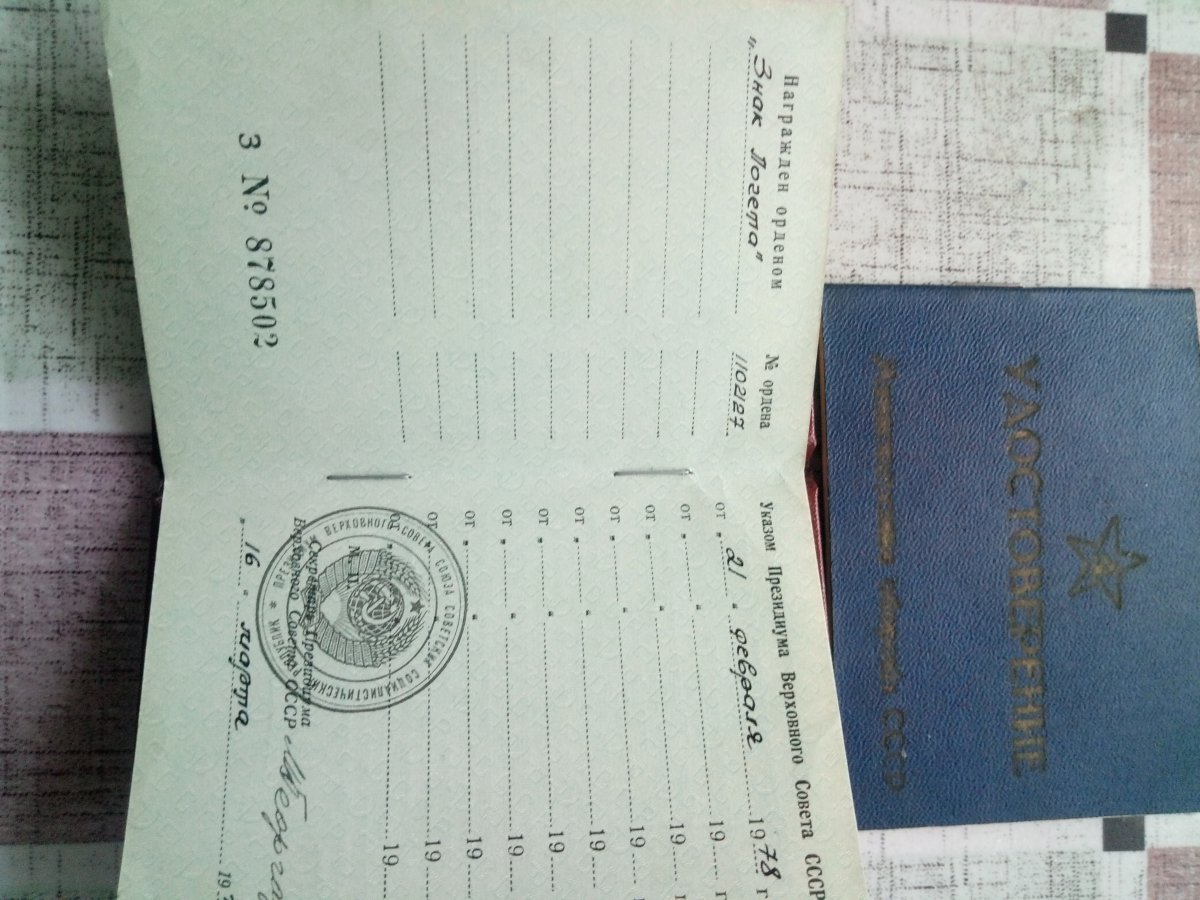 Награжден орденом
№ ордена
Указом Президиума Верховного Совета СССР
„Знак Почета"
1102127
от „ 21 " февраля 1978 г
от „ " 19 г
от „ " 19 г
от „ " 19
от „ " 19
от „ " 19
от „ " 19
от „ " 19
от 19
от 19
М. П.
ВЕРХОВНОГО СОВЕТА СОЮЗА СОВЕТСКИХ СОЦИАЛИСТИЧЕСКИХ
Секретарь Президиума
Верховного Совета СССР
З № 878502
„ 16 " марта 19
УДОСТОВЕРЕНИЕ
СССР